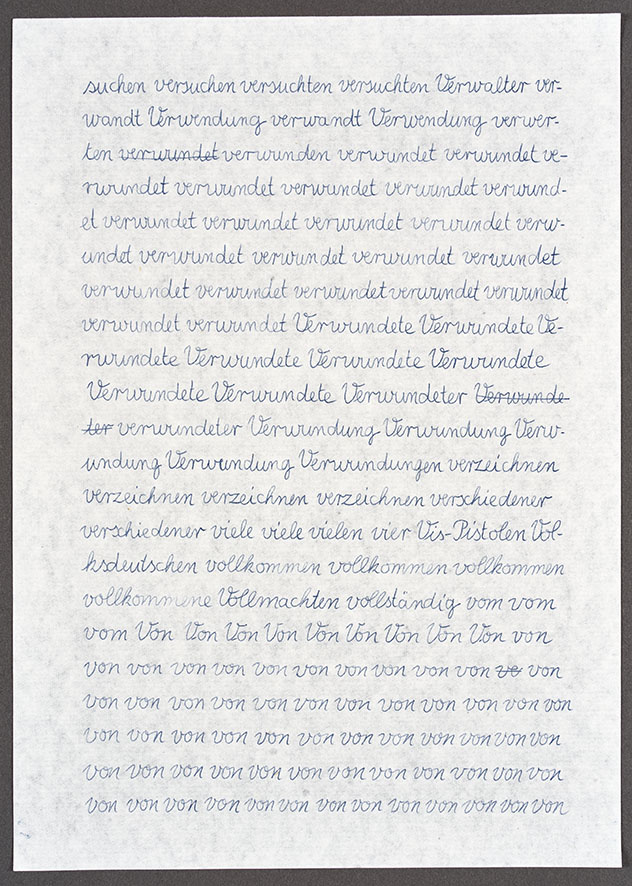 suchen versuchen versuchten versuchten Verwalter ver-
wandt Verwendung verwandt Verwendung verwer-
ten verwundet verwunden verwundet verwundet ve-
rwundet verwundet verwundet verwundet verwund-
et verwundet verwundet verwundet verwundet verw-
undet verwundet verwundet verwundet verwundet
verwundet verwundet verwundet verwundet verwundet
verwundet verwundet Verwundete Verwundete Ve-
rwundete Verwundete Verwundete Verwundete
Verwundete Verwundete Verwundeter Verwunde-
ter verwundeter Verwundung Verwundung Verw-
undung Verwundung Verwundungen verzeichnen
verzeichnen verzeichnen verzeichnen verschiedener
verschiedener viele viele vielen vier Vis-Pistolen Vol-
ksdeutschen vollkommen vollkommen vollkommen
vollkommene Vollmachten vollständig vom vom
vom Von Von Von Von Von Von Von Von Von von
von von von von von von von von von von ve von
von von von von von von von von von von von von
von von von von von von von von von von von von
von von von von von von von von von von von von
von von von von von von von von von von von von von